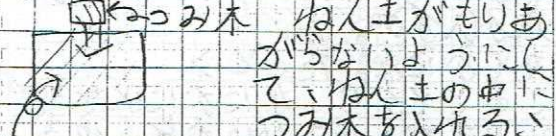 つみ木
ねん土がもりあ
がらないようにし
て、ねん土の中に
つみ木を入れる、